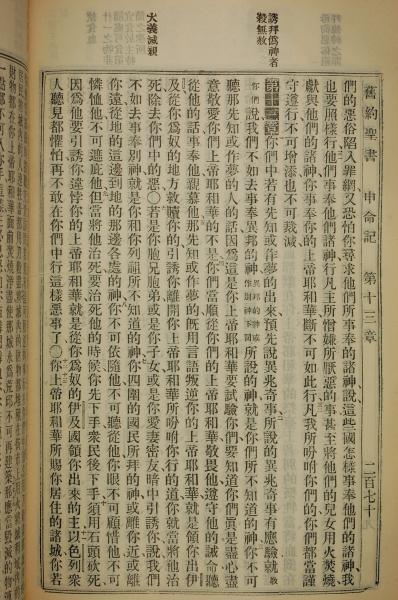 舊約聖書 申命記 第十三章 二百七十九
們的惡俗陷入罪網又恐怕你尋求他們所事奉的諸神說這些國怎樣事奉他們的諸神我
也要照樣行他們事奉他們諸神行凡主所憎嫌所厭惡的事甚至將他們的兒女用火焚燒
獻與他們的諸神你事奉你的上帝耶和華斷不可如此行凡我所吩咐你們的你們都當謹
守遵行不可增添也不可裁減
第十三章你們中若有先知或作夢的出來預先說異兆奇事所說的異兆奇事有應驗就
你們說我們不如去事奉異邦的神所說的神就是你們所不知道的神你不可
聽那先知或作夢的人的話因爲這是你上帝耶和華要試驗你們要知道你們眞是盡心盡
意敬愛你們上帝耶和華的不是你們當順從你們的上帝耶和華敬畏他遵守他的誡命聽
從他的話事奉他親慕他那先知或作夢的旣用言語叛逆你的上帝耶和華就是領你出伊
及從你爲奴的地方救贖你的引誘你離開你上帝耶和華所吩咐你行的道你就當將他治
死除去你們中的惡〇若是你胞兄胞弟或是你子女或是你愛妻密友暗中引誘你說我們
不如去事奉別神就是你和你列祖所不知道的神你四圍的國民所拜的神或離你近或離
你遠從地的這邊到地的那邊各處的神你不可依隨他不可聽從他你眼不可顧惜他不可
憐恤他不可遮庇他但當將他治死要治死他的時候你先下手衆民後下手須用石頭砍死
因爲他要引誘你違悖你的上帝耶和華就是從你爲奴的伊及國領你出來的主以色列衆
人聽見都懼怕再不敢在你們中行這樣惡事了〇你上帝耶和華所賜你居住的諸城你若
誘拜僞神者
殺無赦
大義滅親